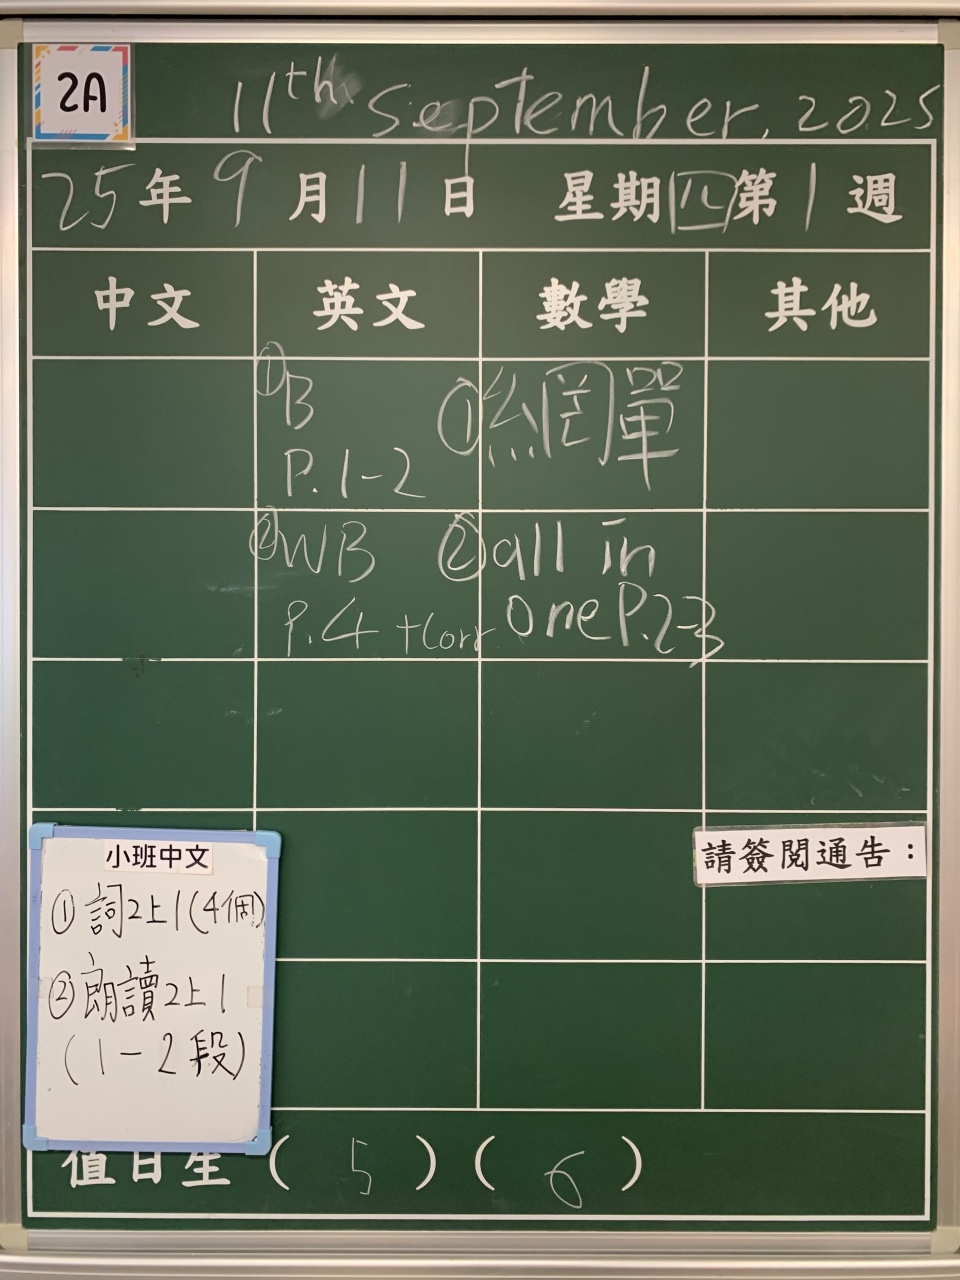 2A
11th September, 2025
25年9月11日 星期四第1週
中文 英文 數學 其他
①B ①網單
P.1-2
②WB ②all in
P.4 +Corr one P.2-3
請簽閱通告：
小班中文
①詞2上1(4個)
②朗讀2上1
(1-2段)
值日生(5)(6)